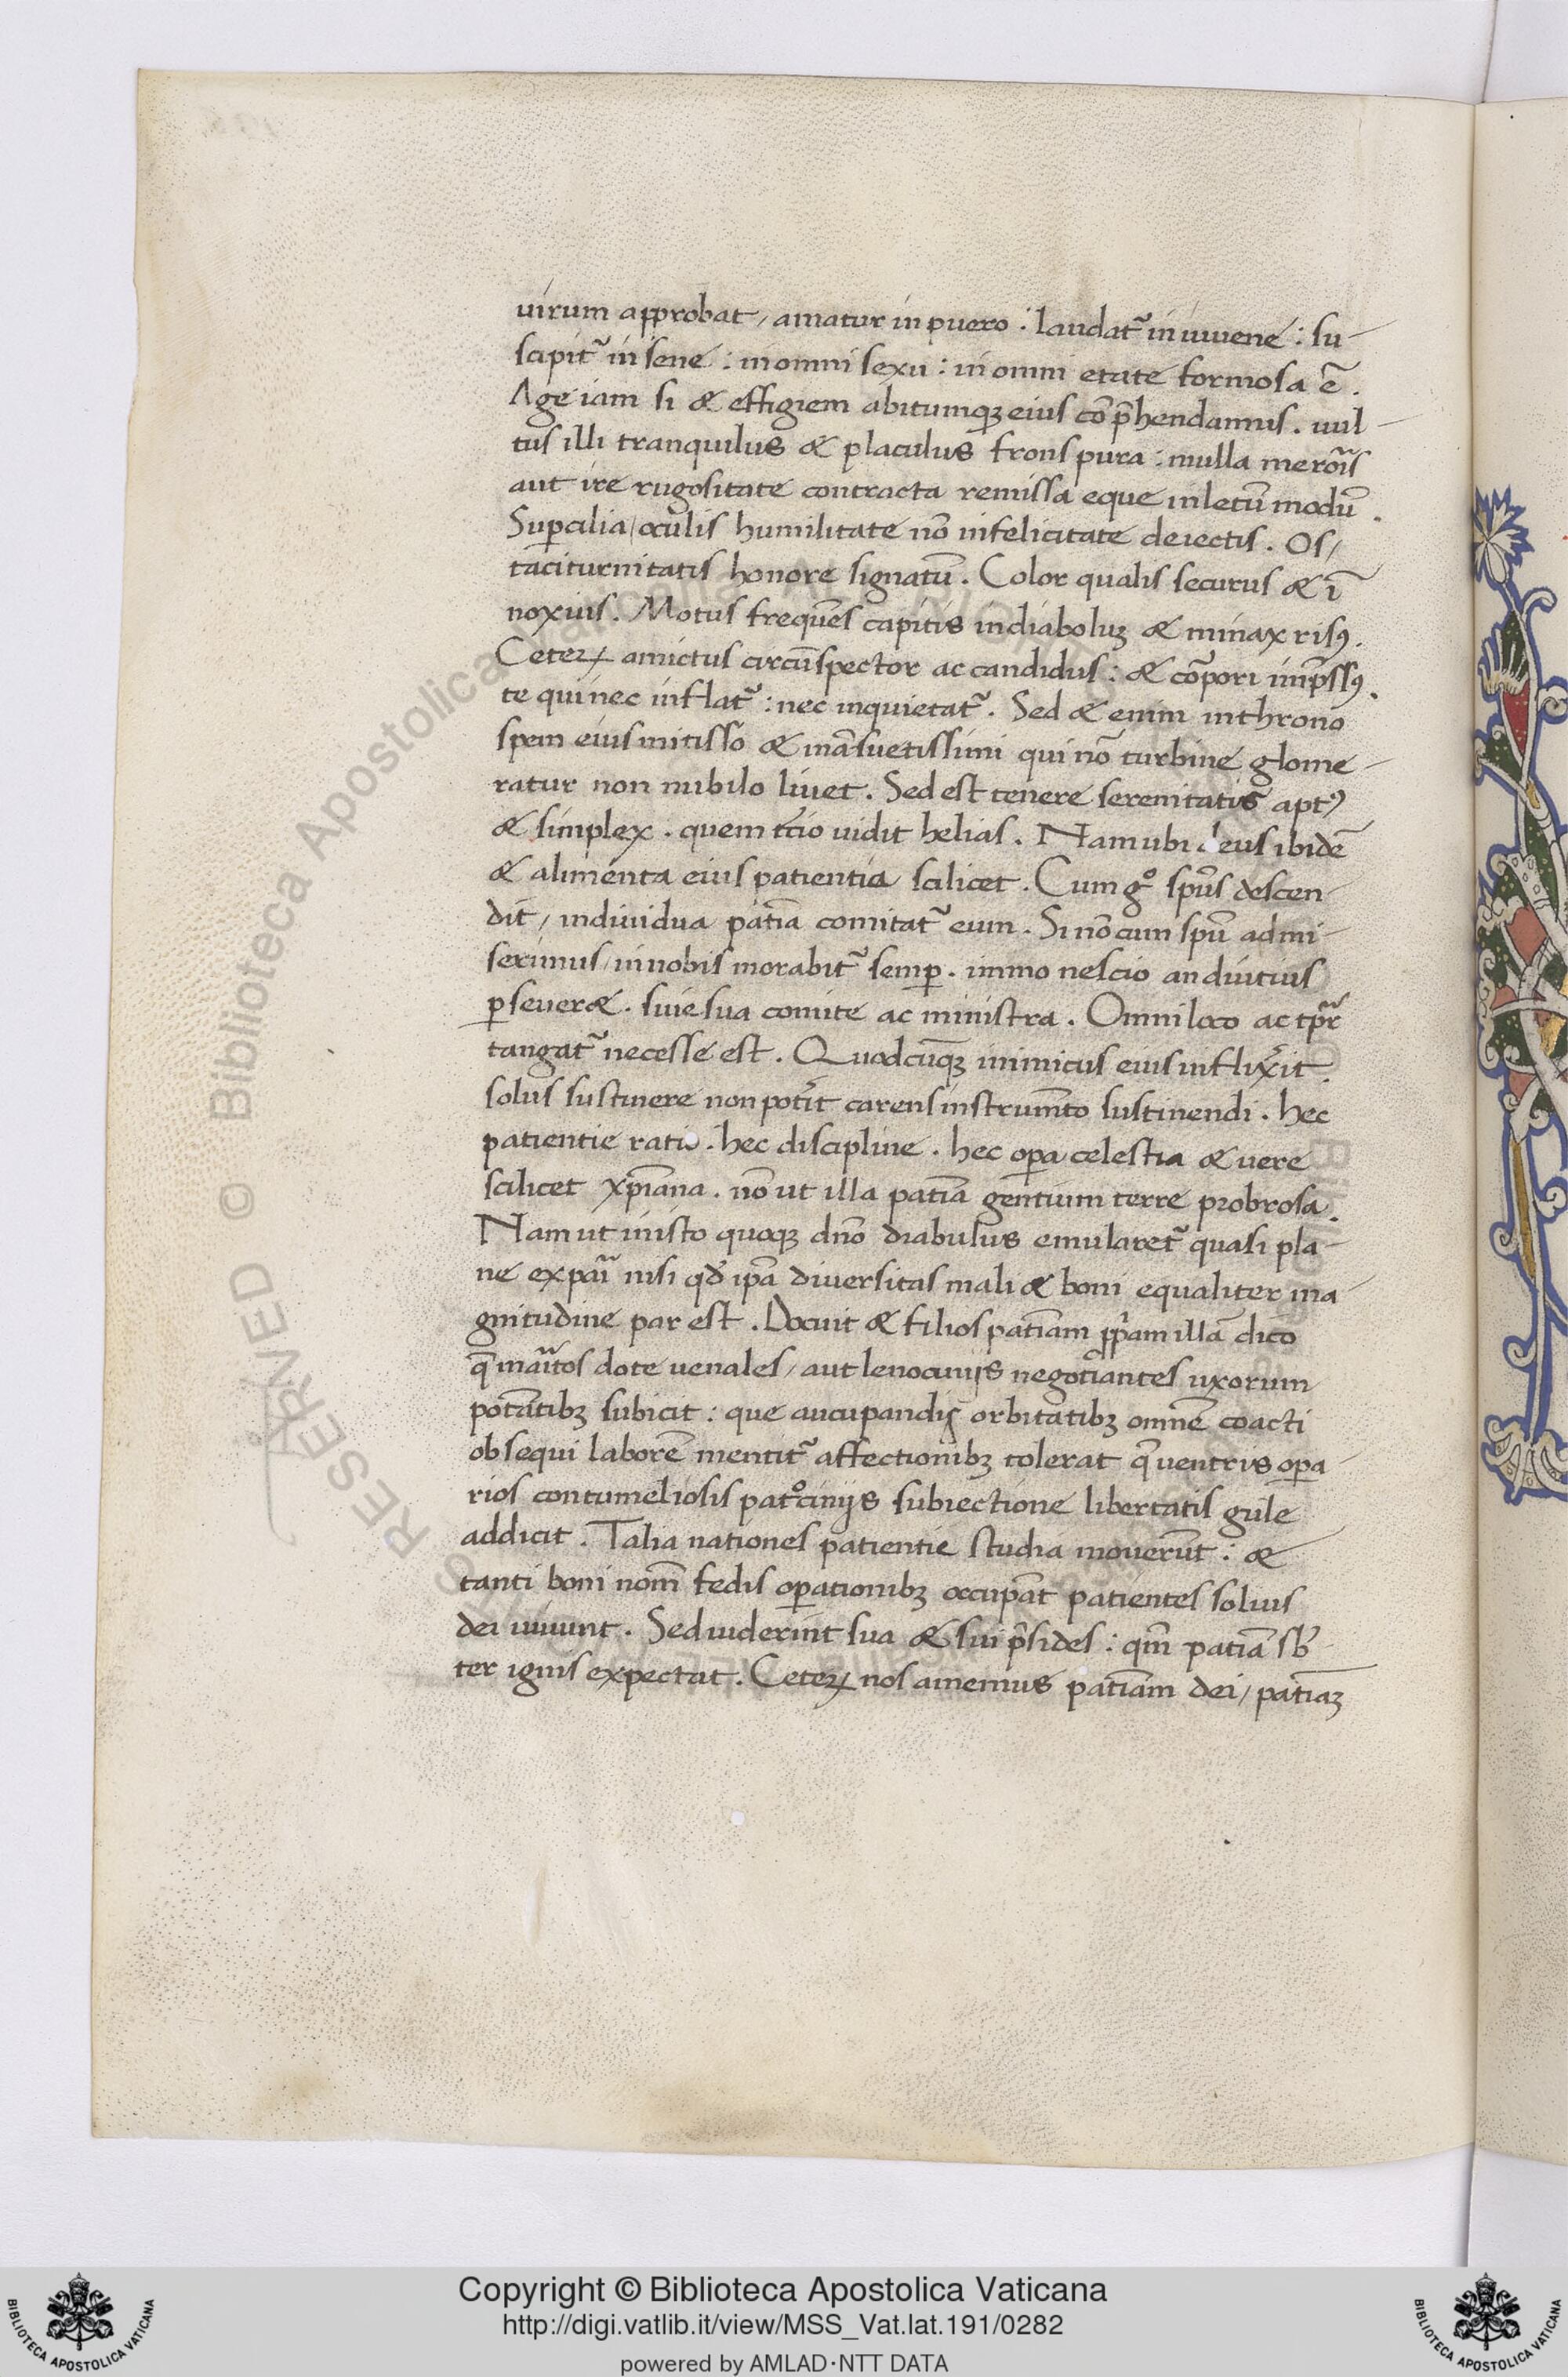 uirum approbat, amatur in puero: laudat᷑ in iuuene: su-
scipit᷑ in sene: in omni sexu: in omni etate formosa ē.
Age iam si & effigiem abitumqꝫ eius cōp̄hendamus. uul-
tus illi tranquilus & placulus frons pura: nulla merōis
aut ire rugositate contracta remissa eque in letū modū.
Suꝑcilia / oculis humilitate nō infelicitate deiectis. Os /
taciturnitatis honore signatū. Color qualis securus & ī
noxius. Motus frequēs capitis in diaboluꝫ & minax risꝰ.
Ceteꝝ amictus circūspector ac candidus: & cōrpori imp̄ssꝰ.
te qui nec inflat᷑: nec inquietat᷑. Sed & enim in throno
spem eius mitissō & māsuetissimi qui nō turbine glome-
ratur non nubilo liuet. Sed est tenere serenitatis aptꝰ
& simplex. quem t̄cio uidit helias. Nam ubi deus ibidē
& alimenta eius patientia scilicet. Cum gͦ sp̄us descen-
dit, indiuidua patīa comitat᷑ eum. Si nō cum spū admi-
serimus, in nobis morabit᷑ semꝑ. immo nescio an diutius
ꝑseuer&. suie sua comite ac ministra. Omni loco ac tp̄r
tangat᷑ necesse est. Quodcūqꝫ inimicus eius inflix̄it.
solus sustinere non pot̄it carens instrum̄to sustinendi. hec
patientie ratio. hec discipline. hec oꝑa celestia & uere
scilicet xp̄iana. nō ut illa patīa gentium terre probrosa.
Nam ut in isto quoqꝫ dn̄o diabulus emularet᷑ quasi pla-
ne ex paī nisi qd̄ ip̄a diuersitas mali & boni equaliter ma-
gnitudine par est. Docuit & filios patīam ꝓp̄am illā dico
q̄ maītos dote uenales, aut lenociniis negotīantes uxorum
potātibꝫ subicit: que aucupandis orbitatibꝫ omnē coacti
obsequi laborē mentit᷑ affectionibꝫ tolerat q̄ uentris oꝑa-
rios contumeliosis patͦcinijs subiectione libertatis gule
addicit. Talia nationes patientie studia mouerūt: &
tanti boni nom̄ fedis oꝑationibꝫ occupāt patientes solius
dei uiuunt. Sed uiderint sua & sui p̄sides: qm̄ patīā sb̄-
ter ignis expectat. Ceteꝝ nos amemus patīam dei, patīaꝫ
Copyright © Biblioteca Apostolica Vaticana
http://digi.vatlib.it/view/MSS_Vat.lat.191/0282
powered by AMLAD·NTT DATA